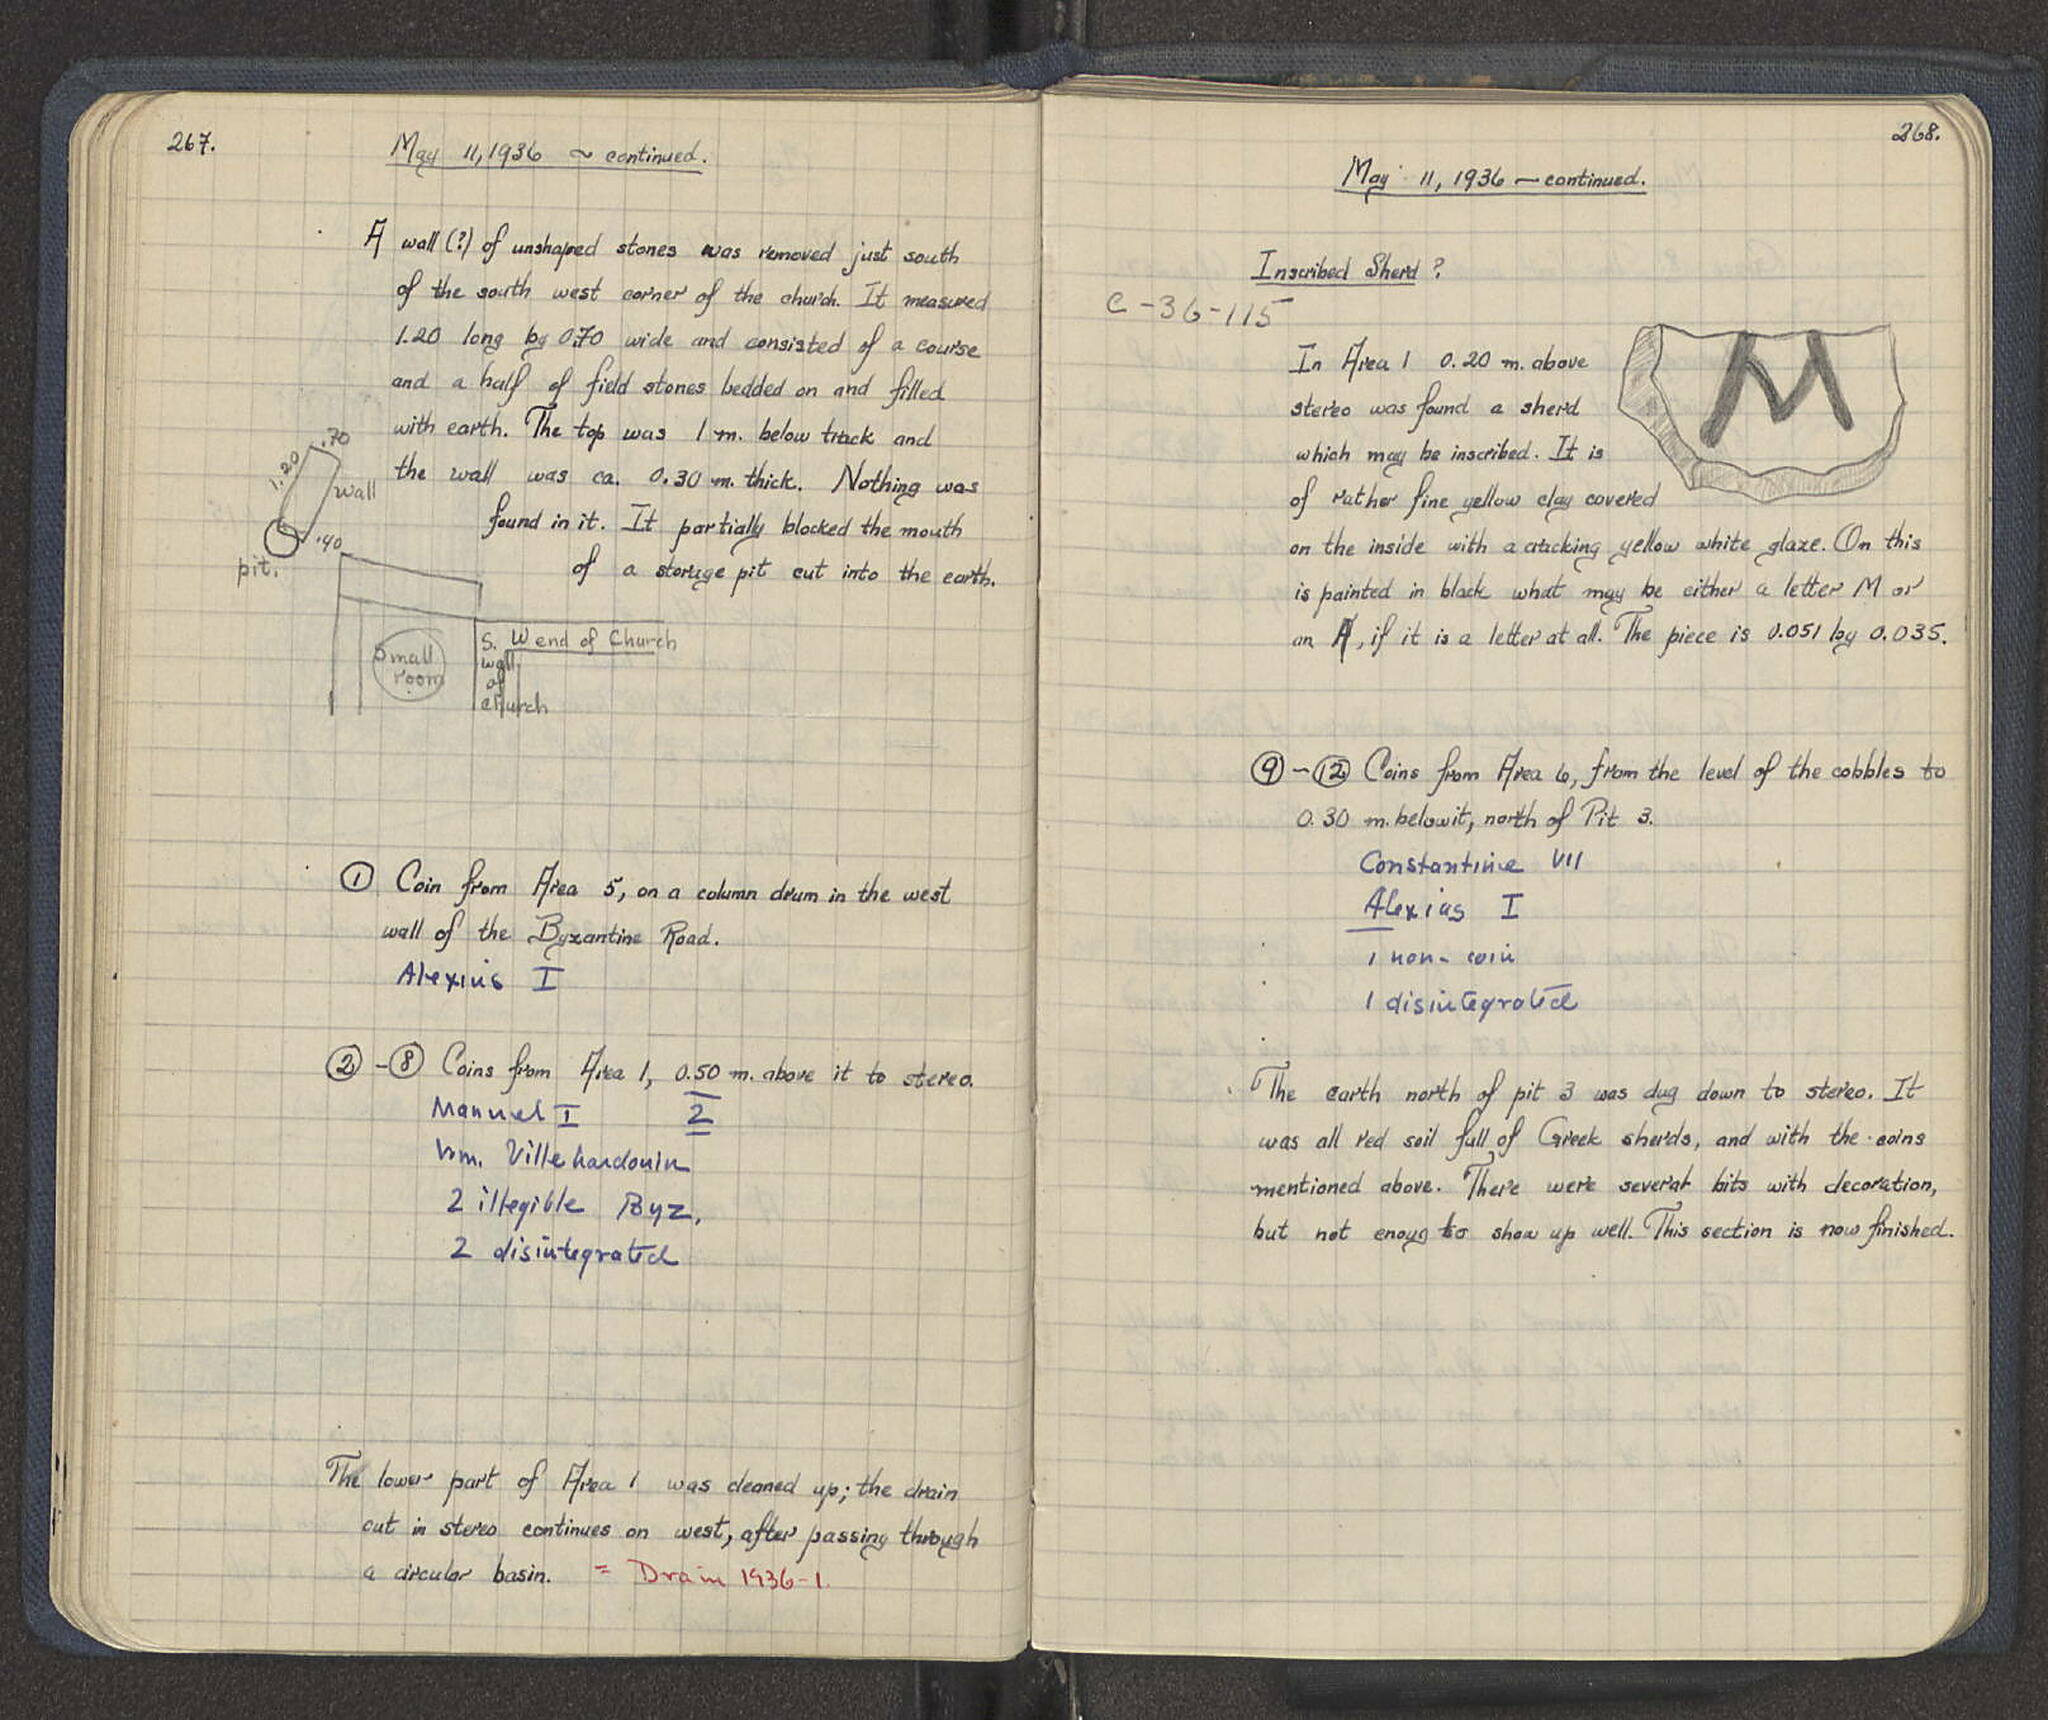 267.
May 11, 1936 ~ continued.
A wall (?) of unshaped stones was removed just south
of the south west corner of the church. It measured
1.20 long by 0.70 wide and consisted of a course
and a half of field stones bedded on and filled
with earth. The top was 1 m. below track and
the wall was ca. 0.30 m. thick. Nothing was
found in it. It partially blocked the mouth
of a storage pit cut into the earth.
.70
1.20
wall
.40
pit.
Small
room
S. W end of Church
wall
of
church
① Coin from Area 5, on a column drum in the west
wall of the Byzantine Road.
Alexius I
② - ⑧ Coins from Area 1, 0.50 m. above it to stereo.
Manuel I 2
Wm. Villehardouin
2 illegible Byz.
2 disintegrated
The lower part of Area 1 was cleaned up; the drain
cut in stereo continues on west, after passing through
a circular basin. = Drain 1936-1.
268.
May 11, 1936 — continued.
Inscribed Sherd ?
C-36-115
In Area 1 0.20 m. above
stereo was found a sherd
which may be inscribed. It is
of rather fine yellow clay covered
on the inside with a cracking yellow white glaze. On this
is painted in black what may be either a letter M or
an A, if it is a letter at all. The piece is 0.051 by 0.035.
M
⑨ - ⑫ Coins from Area 6, from the level of the cobbles to
0.30 m. below it, north of Pit 3.
Constantine VII
Alexius I
1 non-coin
1 disintegrated
The earth north of pit 3 was dug down to stereo. It
was all red soil full of Greek sherds, and with the coins
mentioned above. There were several bits with decoration,
but not enoug to show up well. This section is now finished.